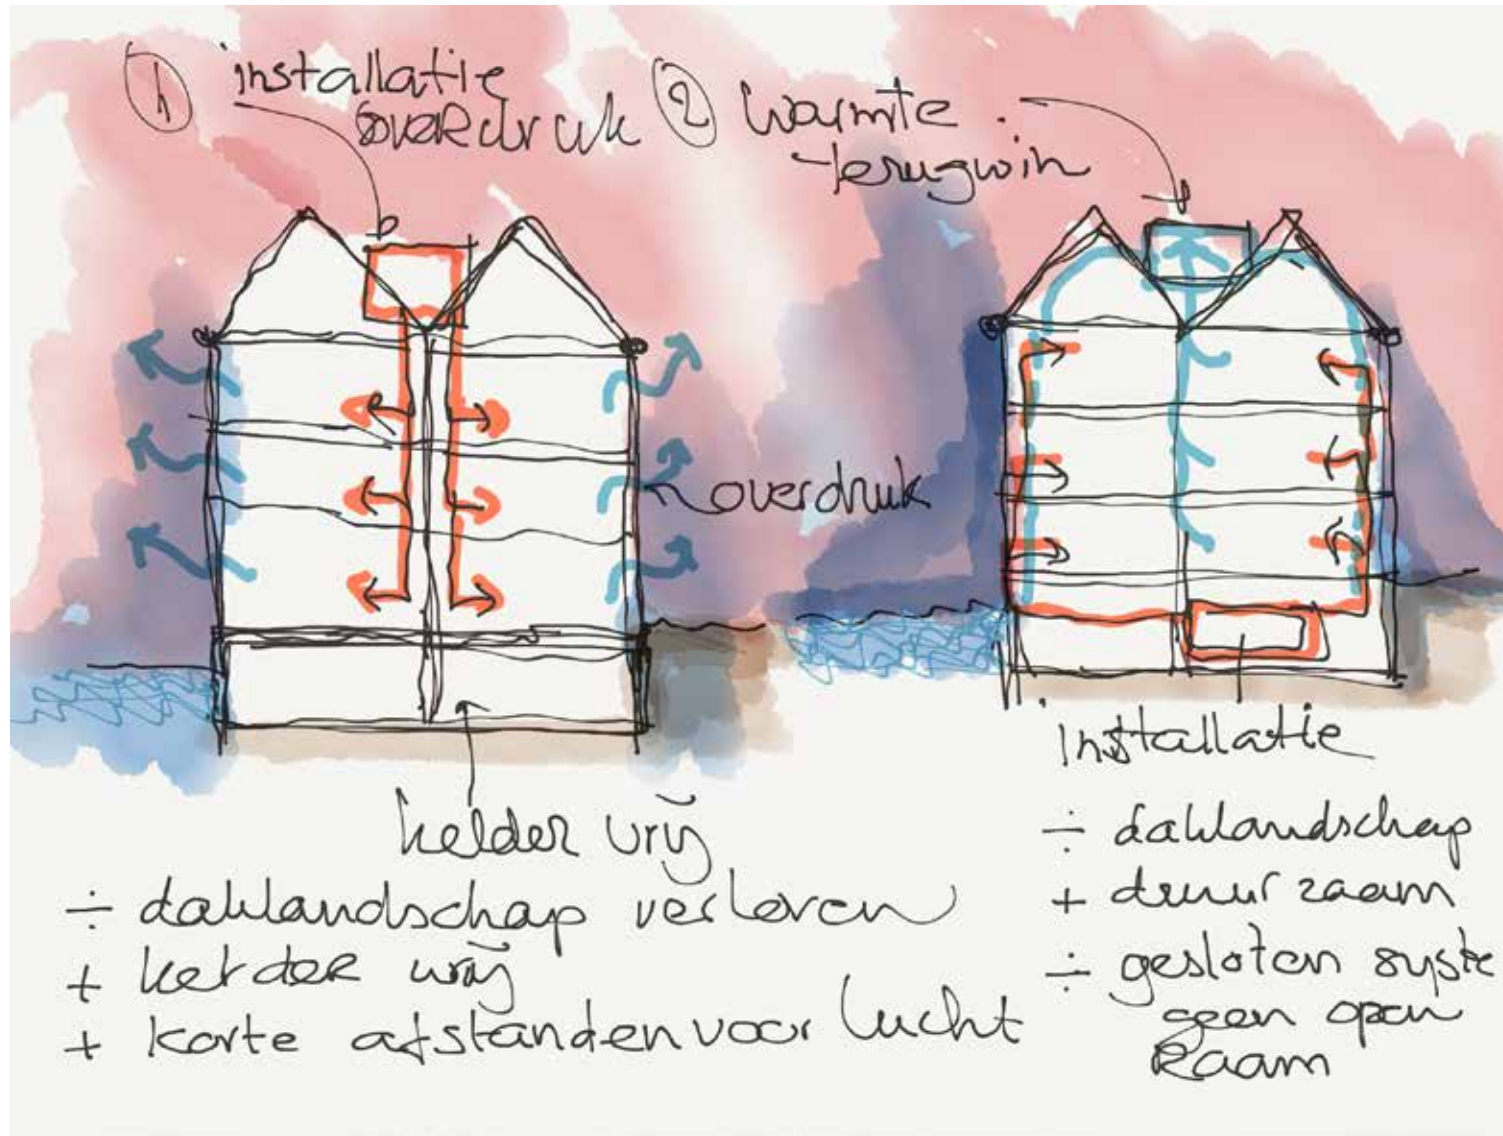 1 installatie
overdruk
2 warmte
terugwin
overdruk
kelder vrij
÷ daklandschap verloren
+ kelder vrij
+ korte afstanden voor lucht
installatie
÷ daklandschap
+ duurzaam
÷ gesloten syste
geen open
raam